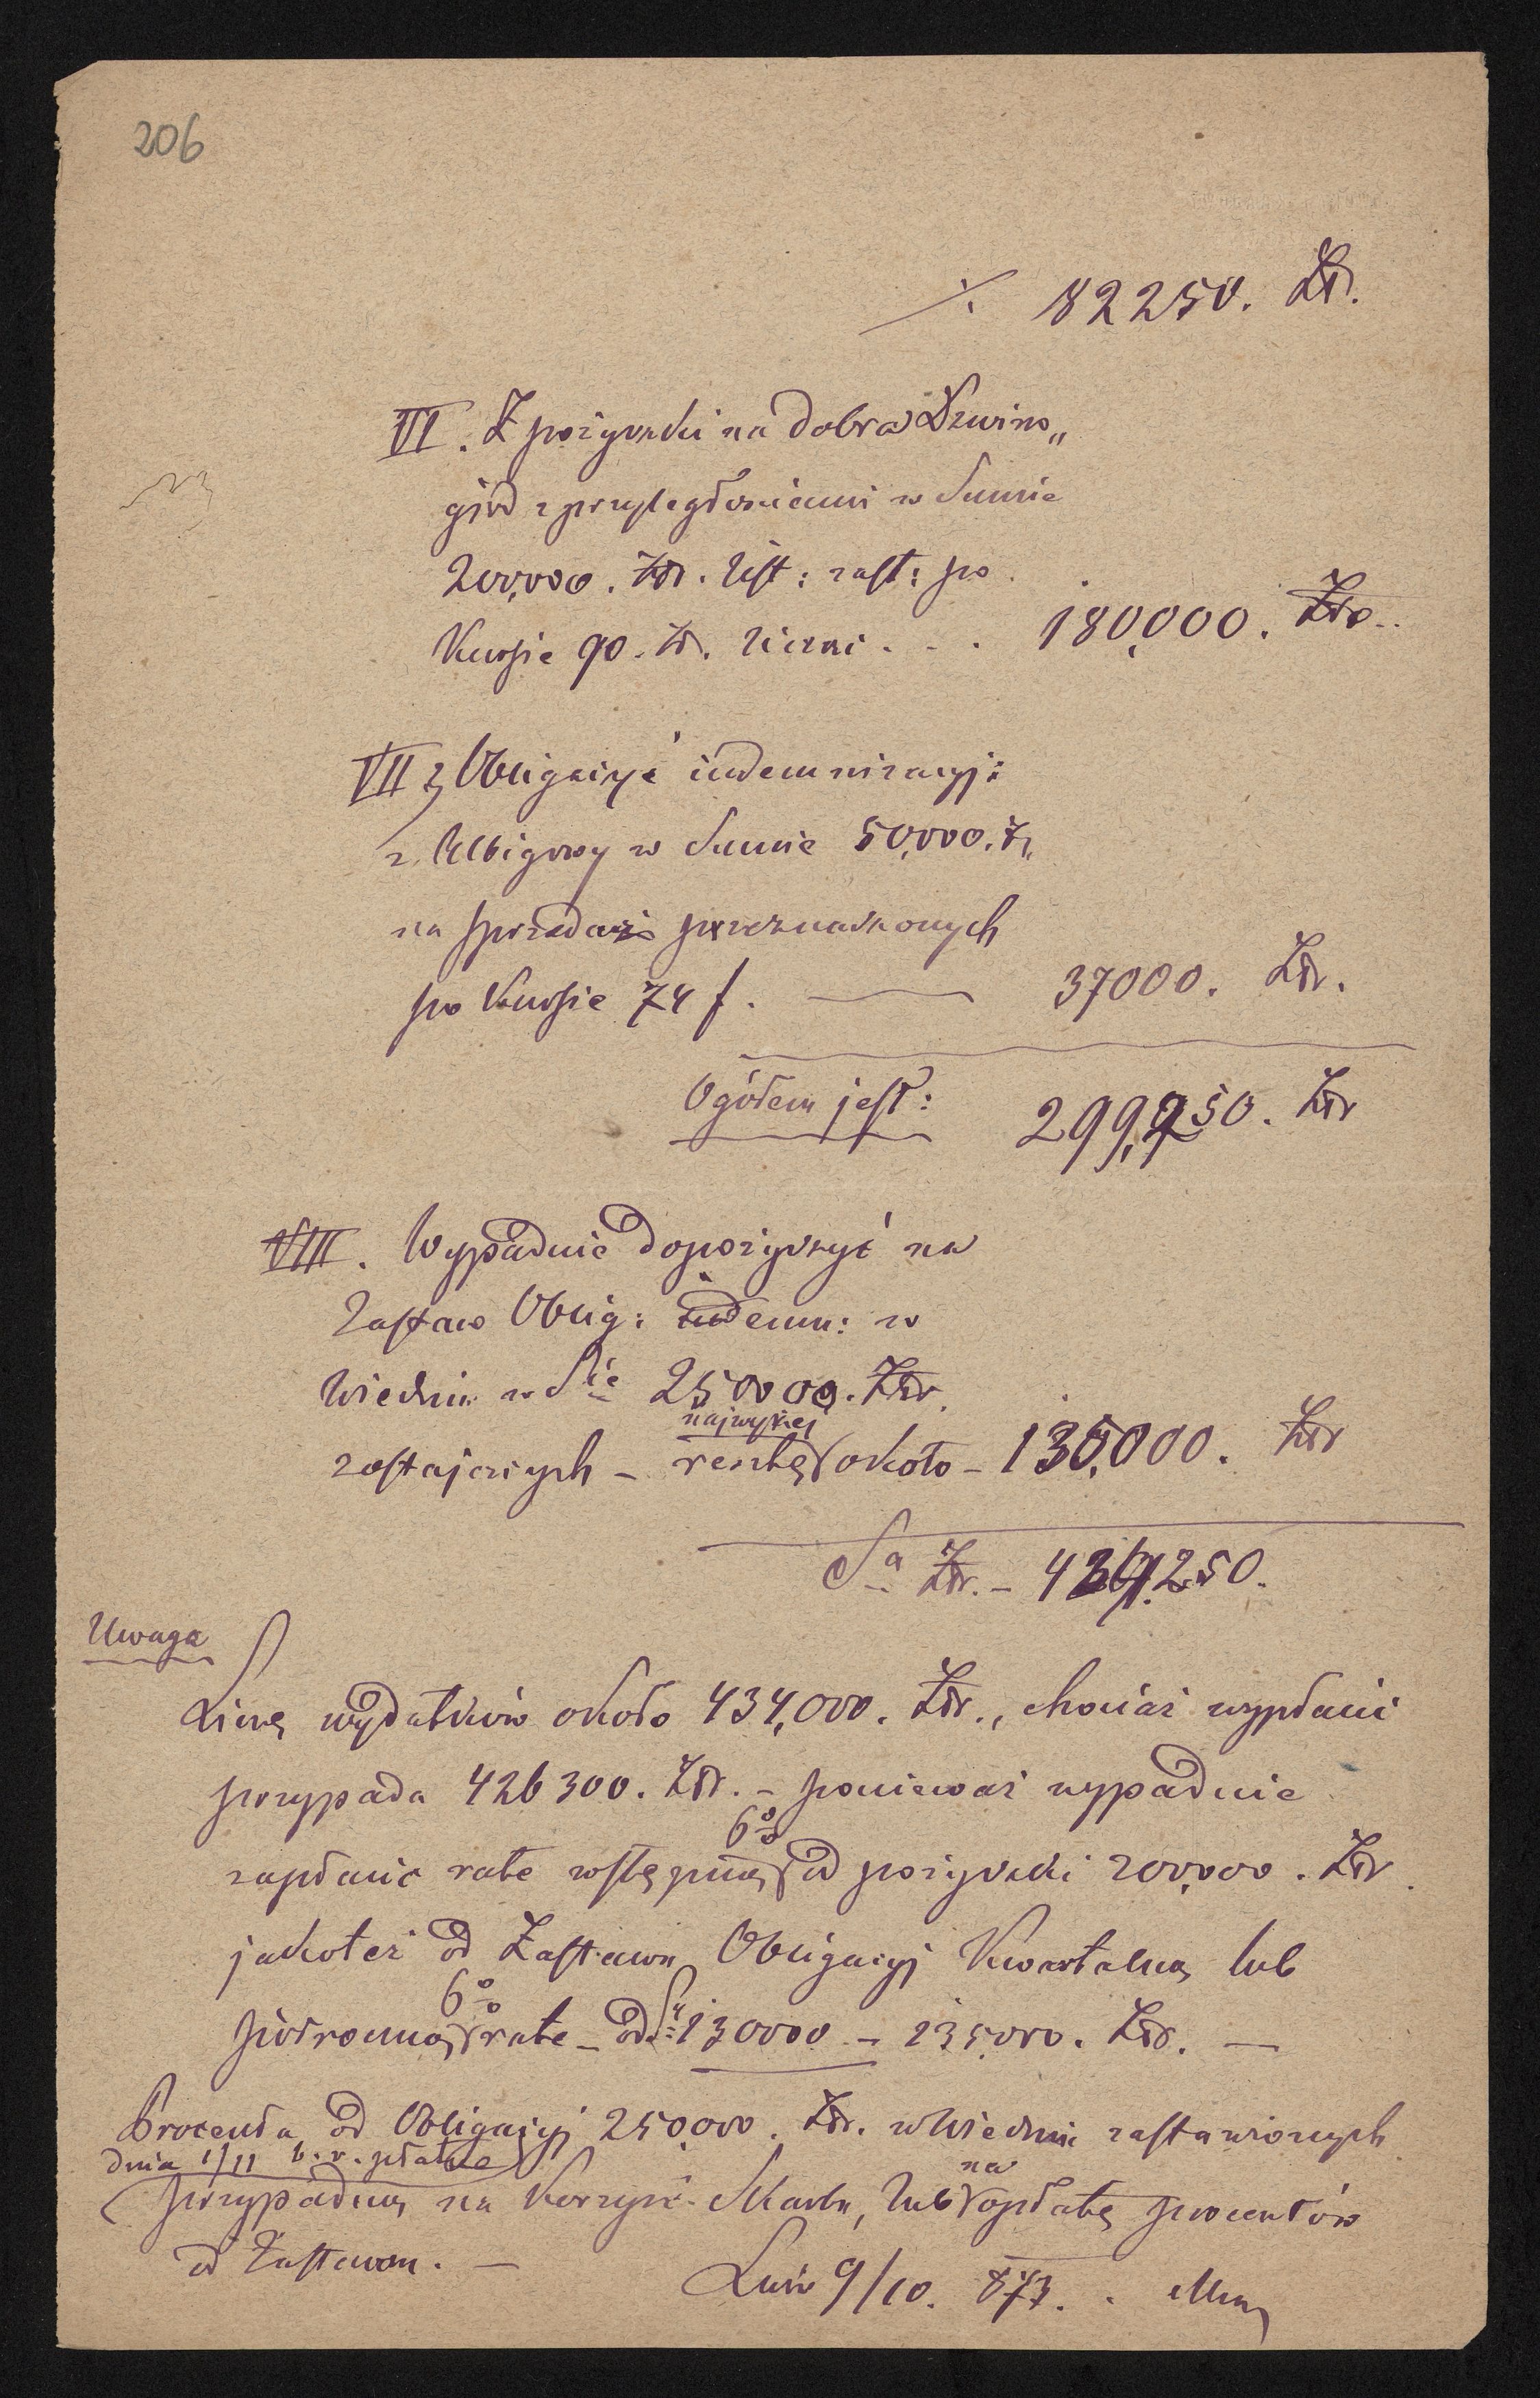 206
⁒ 82250. Złr.
VI. Z pożyczki na dobra Dzwino„
gród z przyległościami w Sumie
200,000. Złr. list: zast: po
Kursie 90. Zł. liczni . . . 180,000. Złr.
VII z Obligacyi indemnizacyj:
z Albigowy w Sumie 50,000. Zł
na sprzedaż przeznaczonych
po Kursie 74 f. — 37000. Złr.
Ogółem jest: 299,250. Złr
VIII. Wypadnie dopożyczyć na
Zastaw Oblig: indemn: w
Wiedniu w Sie 250000. Złr.
najwyżej
zostających – resztę okoto – 135,000. Złr
Sa Złr. – 434,250.
Uwaga
Liczę wydatków około 434,000. Złr., chociaż wypłacić
przypada 426300. Złr. – ponieważ wypadnie
6%
zapłacić ratę wstępną od pożyczki 200,000. Złr
jakoteż od Zastawu Obligacyj Kwartalną lub
6%
półroczną ratę – od Sy 130000 – 135,000. Złr. —
Procenta od Obligacyj 250,000. Złr. w Wiedniu zastawionych
dnia 1/11 b. r. płatne
na
przypadną na Korzyść Skarbu, lub opłatę procentów
od Zastawu. —
Lwów 9/10. 873.